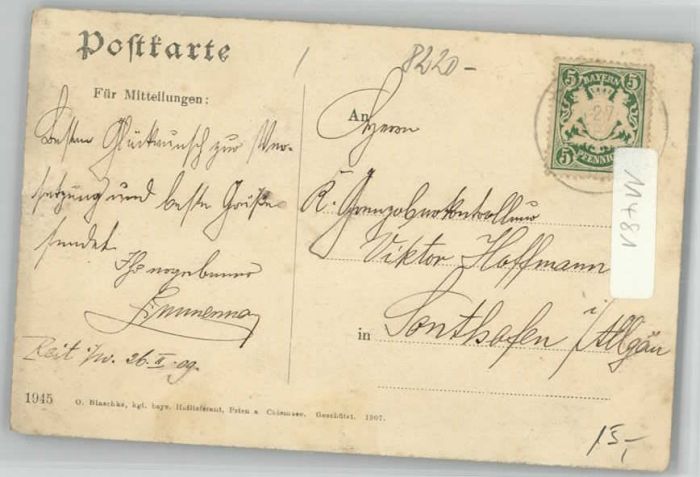 Postkarte
8220-
Für Mitteilungen:
Besten Glückwunsch zur Ver-
setzung und beste Grüße
sendet
Ihr ergebener
Reit i/W. 26.II.09.
BAYERN
5 5
27
5 PFENNIG
An
Herrn
K. Grenzoberkontrolleur
Viktor Hoffmann
in Sonthofen i/Allgäu
11481
1945 O. Blaschke, kgl. bayr. Hoflieferant, Prien a. Chiemsee. Geschützt. 1907.
15,-